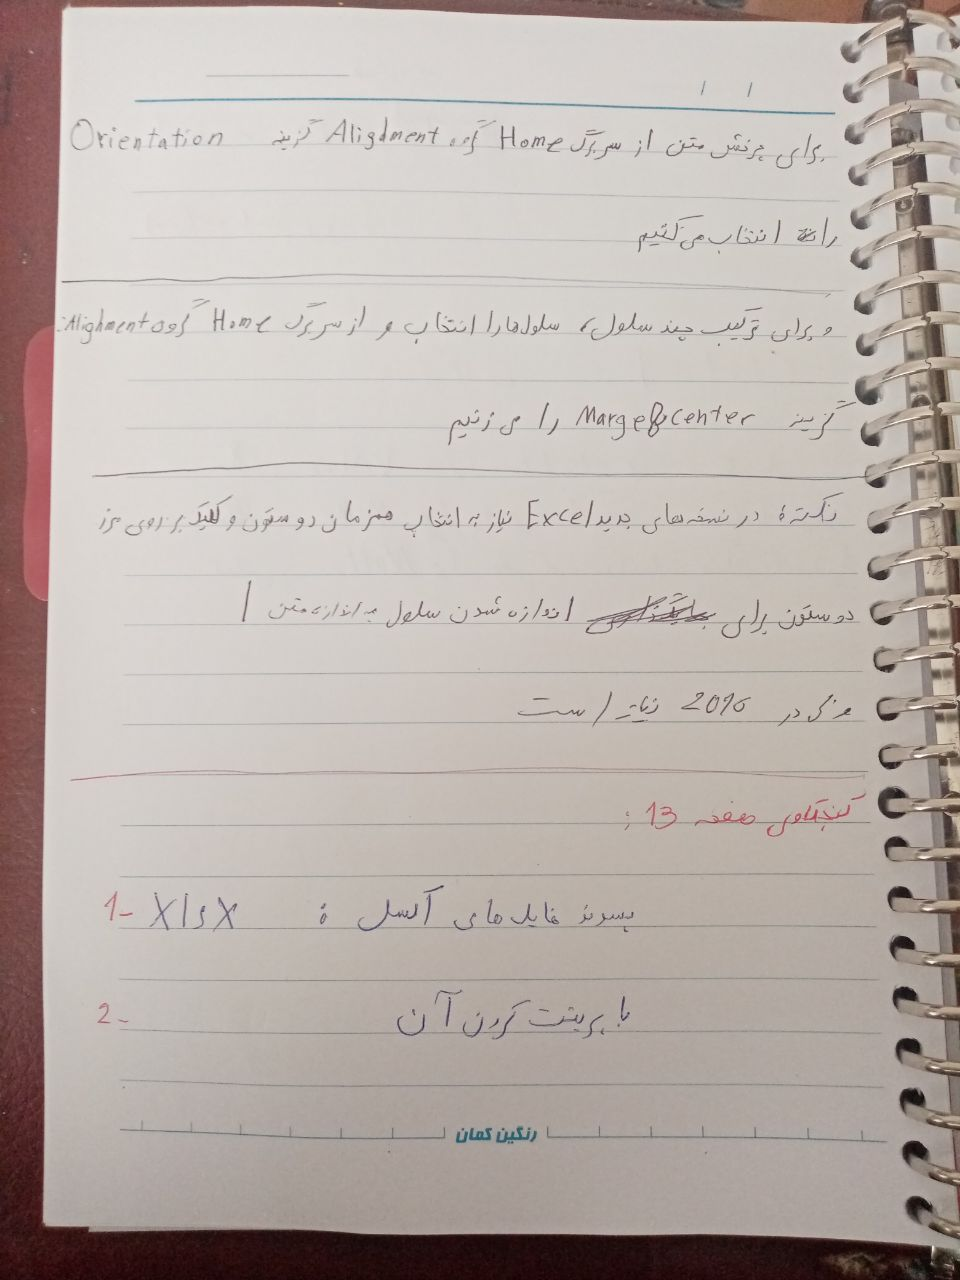 برای چرخش متن از سربرگ Home گروه Alighment گزینه Orientation
را انتخاب می کنیم
و برای ترکیب چند سلول، سلول ها را انتخاب و از سربرگ Home گروه Alighment:
گزینه Marge&center را می زنیم
نکته: در نسخه های جدید Excel نیاز به انتخاب همزمان دو ستون و کلیک بر روی مرز
دو ستون برای اندازه شدن سلول به اندازه متن
ولی در 2016 نیاز است
کنجکاوی صفحه 13:
1- پسوند فایل های اکسل: xlsx
2- با پرینت کردن آن
رنگین کمان